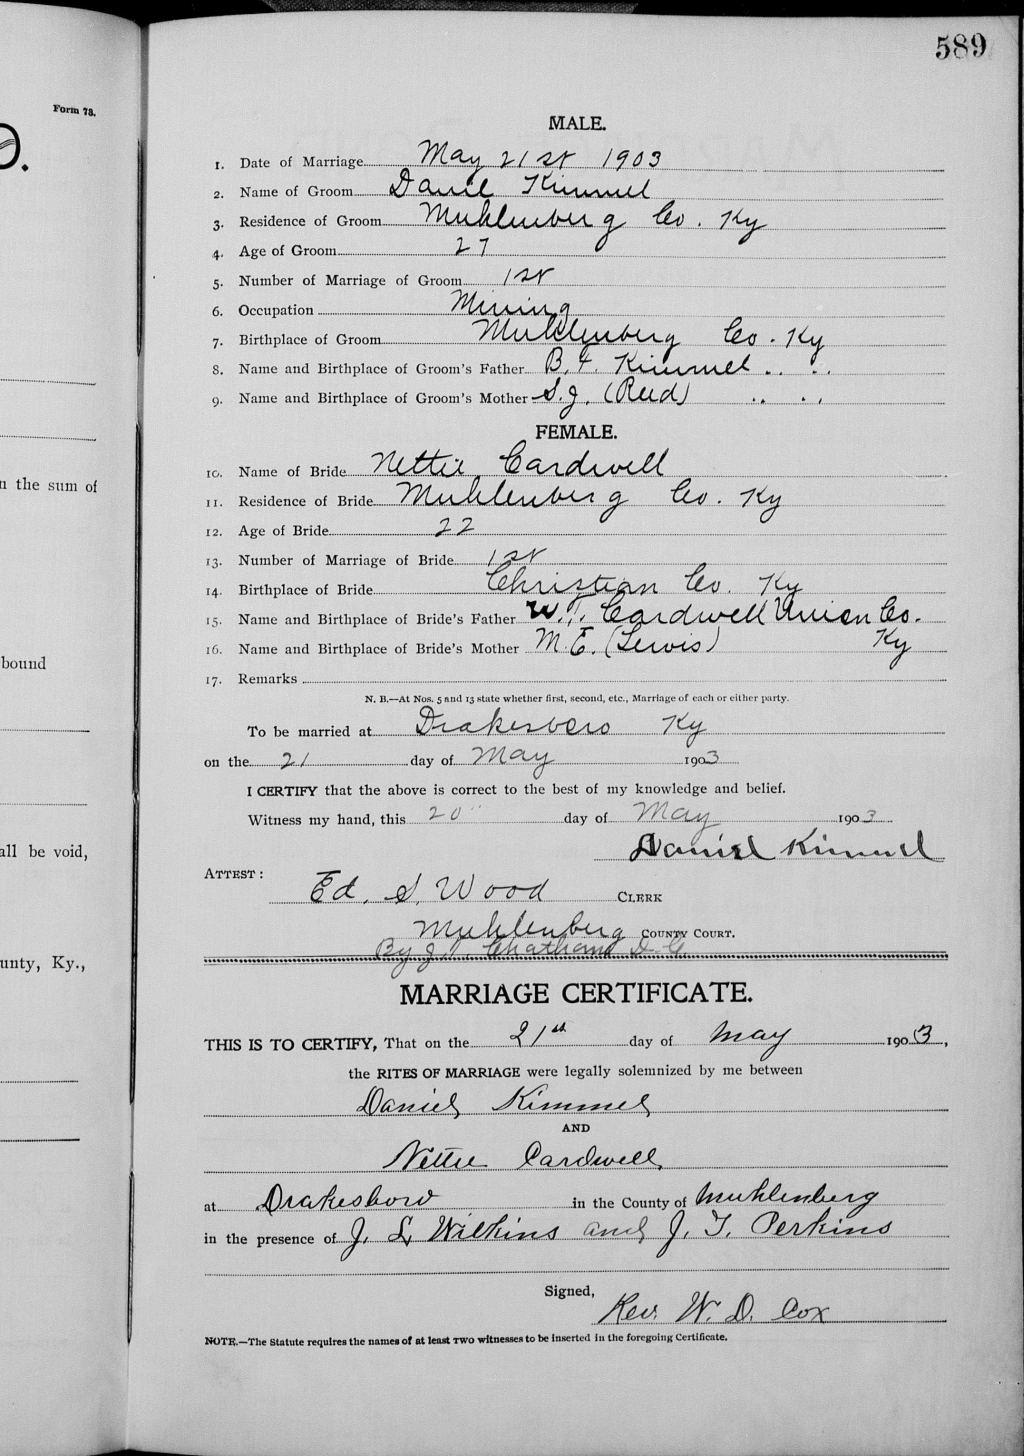 589
Form 78.
O.
MALE.
1. Date of Marriage May 21st 1903
2. Name of Groom Daniel Kimmel
3. Residence of Groom Muhlenberg Co. Ky
4. Age of Groom 27
5. Number of Marriage of Groom 1st
6. Occupation Mining
7. Birthplace of Groom Muhlenberg Co. Ky
8. Name and Birthplace of Groom's Father B. F. Kimmel .. ..
9. Name and Birthplace of Groom's Mother S. J. (Reed) .. ..
FEMALE.
10. Name of Bride Nettie Cardwell
n the sum of
11. Residence of Bride Muhlenberg Co. Ky
12. Age of Bride 22
13. Number of Marriage of Bride 1st
14. Birthplace of Bride Christian Co. Ky
15. Name and Birthplace of Bride's Father W. T. Cardwell Union Co.
16. Name and Birthplace of Bride's Mother M. E. (Lewis) Ky
bound
17. Remarks
N. B.—At Nos. 5 and 13 state whether first, second, etc., Marriage of each or either party.
To be married at Drakesboro Ky
on the 21 day of May 1903
I CERTIFY that the above is correct to the best of my knowledge and belief.
Witness my hand, this 20" day of May 1903
all be void,
Daniel Kimmel
ATTEST:
Ed. S. Wood CLERK
Muhlenberg COUNTY COURT.
By J. T. Chatham D. C.
unty, Ky.,
MARRIAGE CERTIFICATE.
THIS IS TO CERTIFY, That on the 21st day of May 1903,
the RITES OF MARRIAGE were legally solemnized by me between
Daniel Kimmel
AND
Nettie Cardwell
at Drakesboro in the County of Muhlenberg
in the presence of J. L. Wilkins and J. T. Perkins
Signed,
Rev. W. D. Cox
NOTE.—The Statute requires the names of at least TWO witnesses to be inserted in the foregoing Certificate.